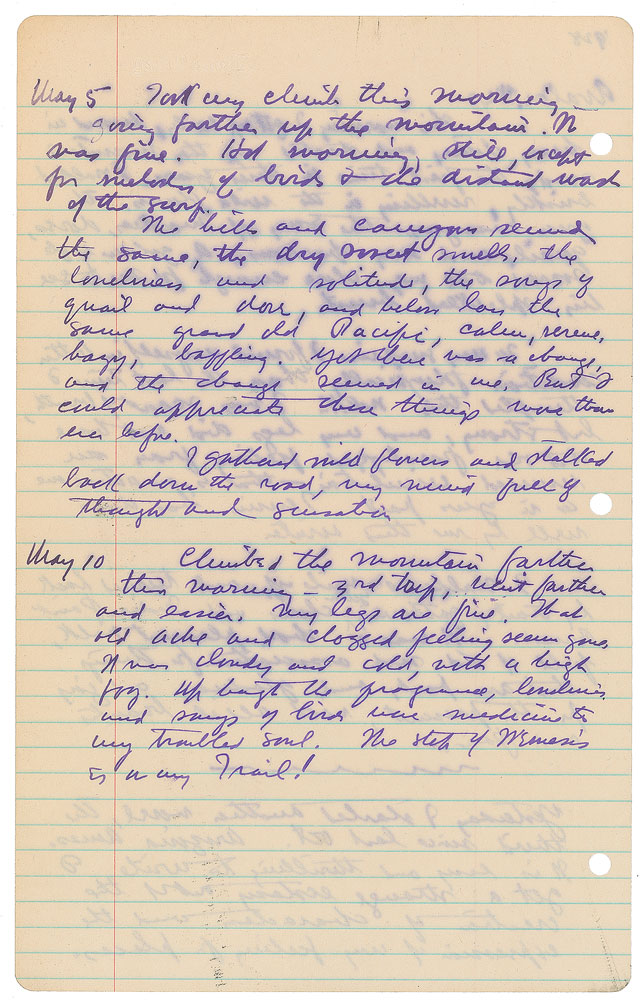 May 5 Took my climb this morning –
going farther up the mountain. It
was fine. Hot morning, still, except
for melodies of birds & the distant wash
of the surf.
The hills and canyons seemed
the same, the dry sweet smells, the
loneliness and solitude, the songs of
quail and dove, and below lay the
same grand old Pacific, calm, serene,
hazy, baffling. Yet there was a change,
and the change seemed in me. But I
could appreciate these things more than
ever before.
I gathered wild flowers and stalked
back down the road, my mind full of
thought and sensation
May 10 Climbed the mountain farther
this morning – 3rd trip, went farther
and easier. My legs are fine. That
old ache and clogged feeling seem gone.
It was cloudy and cold, with a high
fog. Up the fragrance, loneliness
and songs of birds were medicine to
my troubled soul. The step of Nemesis
is on my Trail!